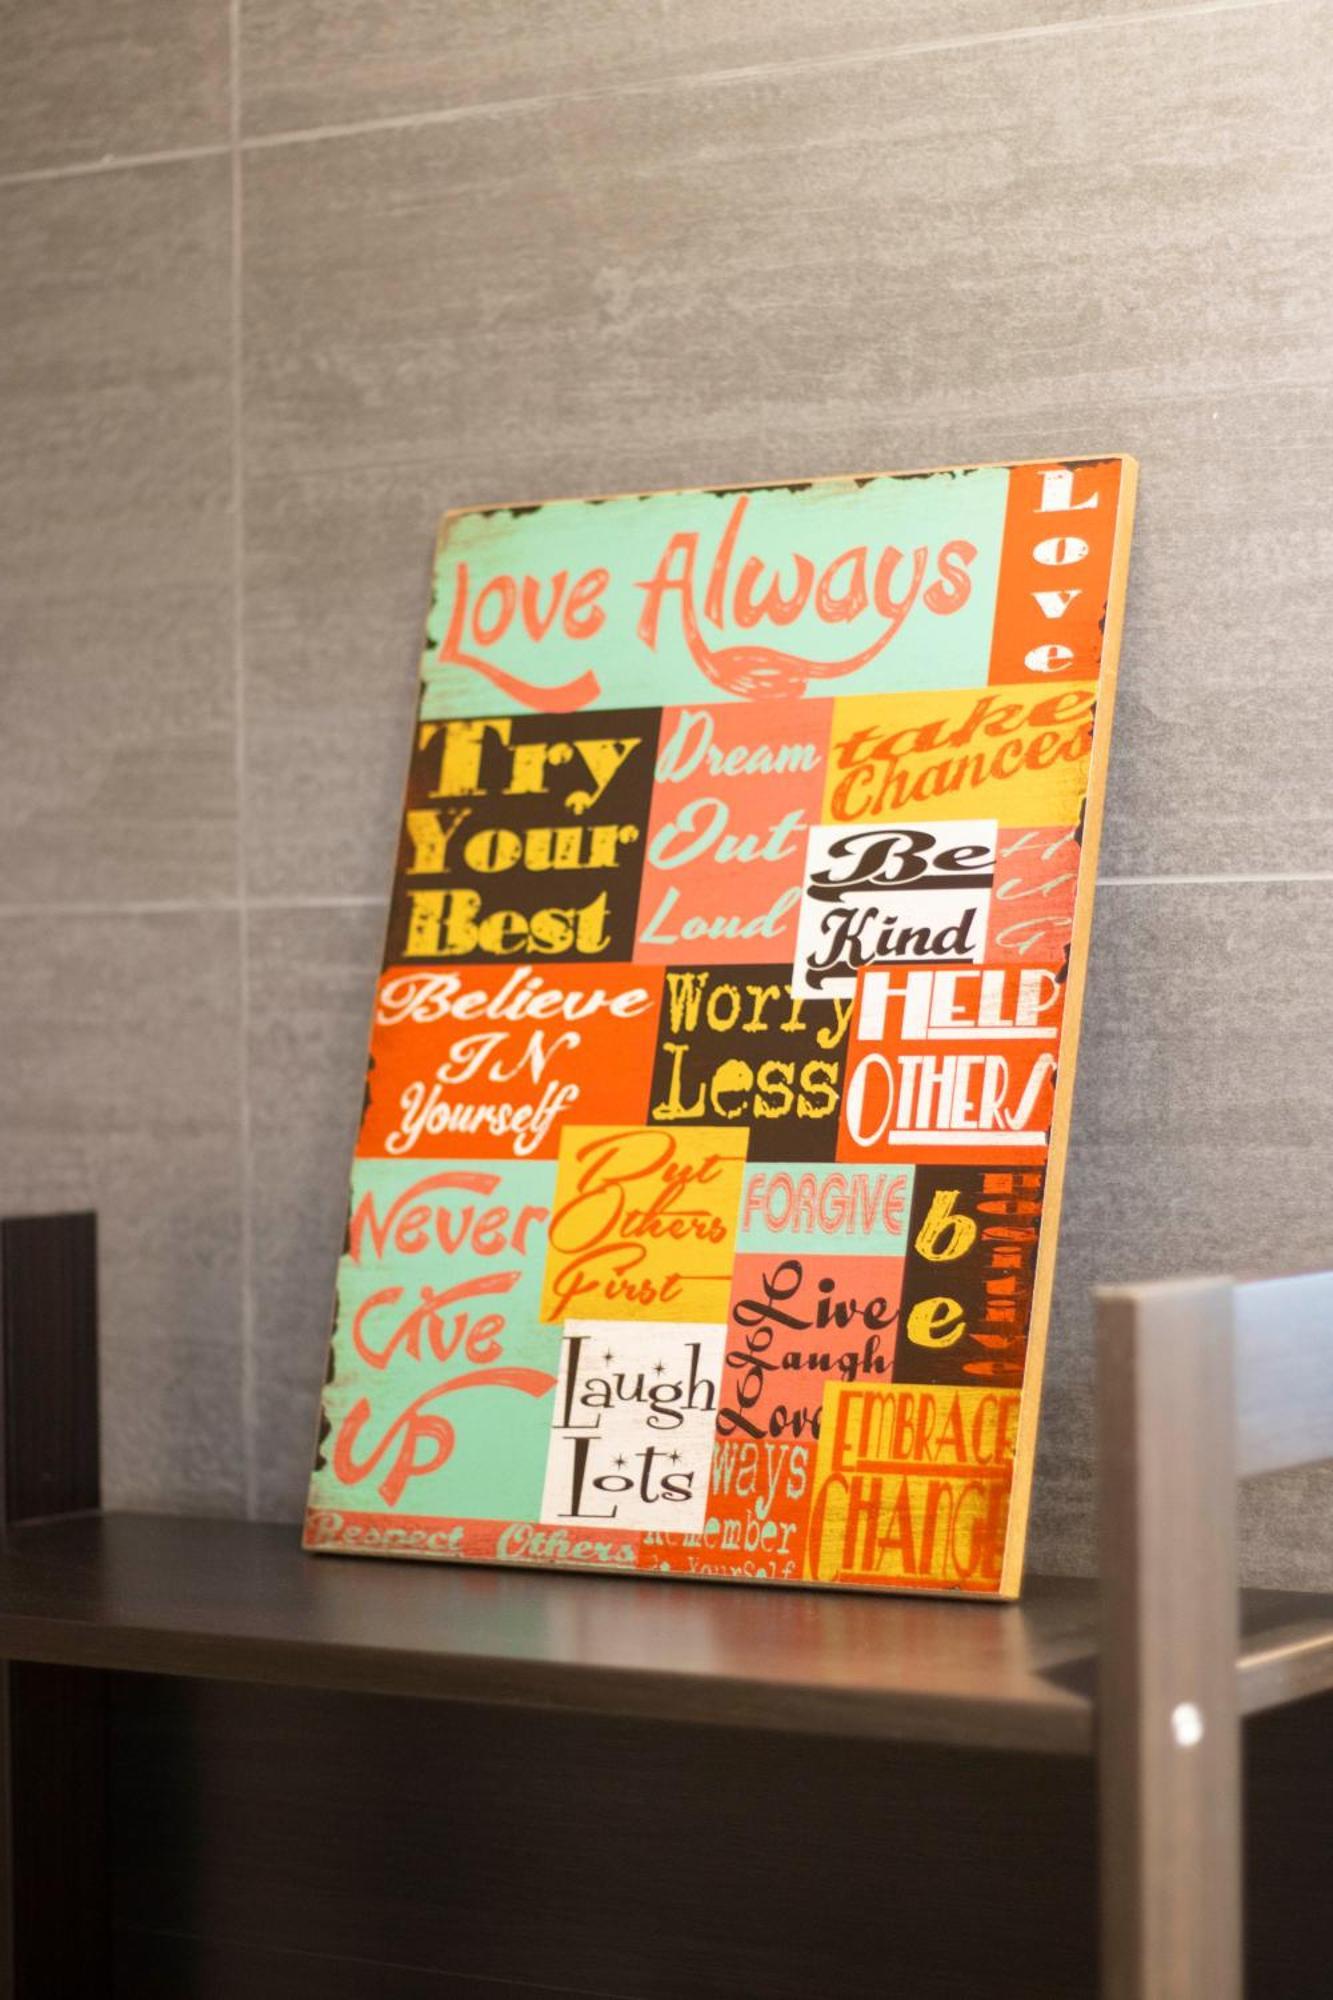 Love Always
L
o
v
e
Try
Your
Best
Dream
Out
Loud
take
Chances
Be
Kind
H
U
G
Believe
IN
Yourself
Worry
Less
HELP
OTHERS
Never
Give
Up
Put
Others
First
FORGIVE
be
Live
Laugh
Love
Laugh
Lots
EMBRACE
CHANGE
ways
Remember
YourSelf
Respect Others